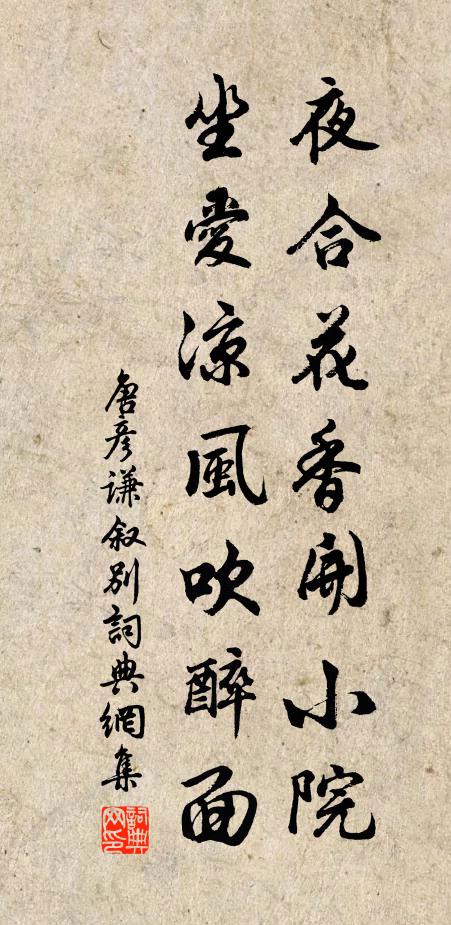 夜合花香開小院
坐愛涼風吹醉面
唐彥謙敘別詞典網集
詞典網印